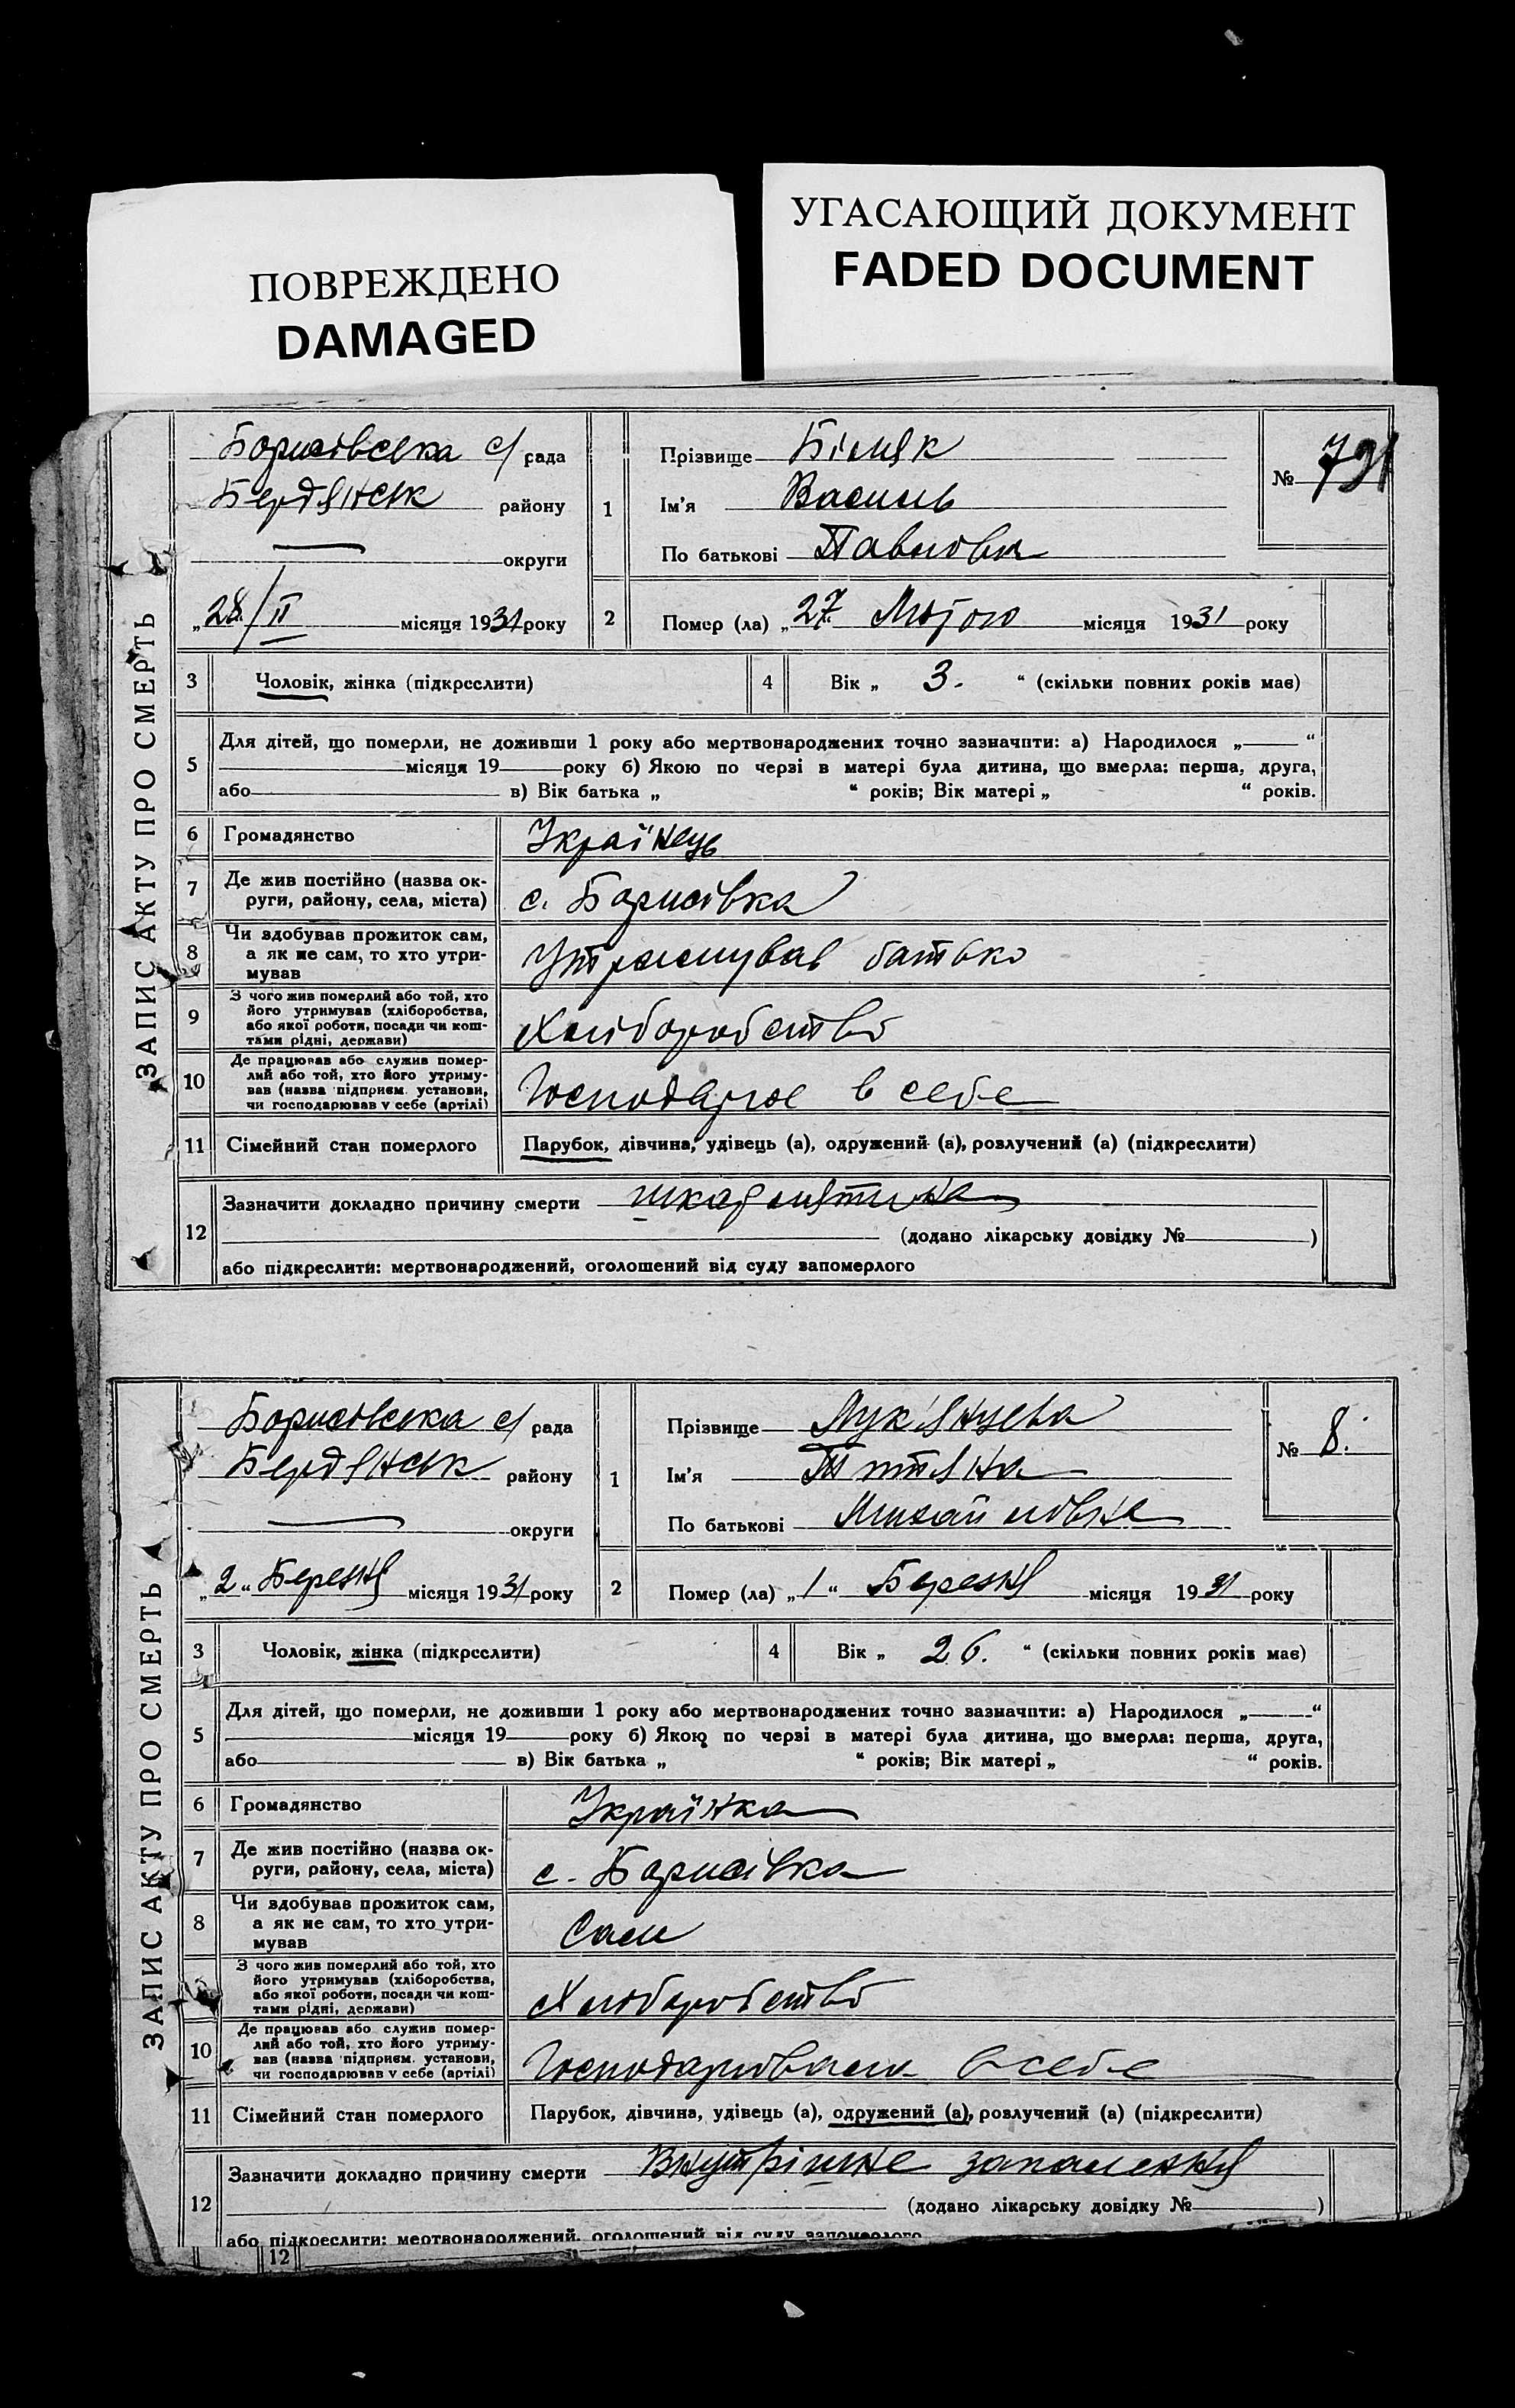 ПОВРЕЖДЕНО
DAMAGED
УГАСАЮЩИЙ ДОКУМЕНТ
FADED DOCUMENT
ЗАПИС АКТУ ПРО СМЕРТЬ
Борисівська с/рада
Бердянськ району
округи
„28/II місяця 1931 року
1
Прізвище Біляк
Ім'я Василь
По батькові Павлович
№
2 Помер (ла) „27. Лютого місяця 1931 року
3 Чоловік, жінка (підкреслити)
4 Вік „ 3. “ (скільки повних років має)
5 Для дітей, що померли, не доживши 1 року або мертвонароджених точно зазначити: а) Народилося „ “
місяця 19 року б) Якою по черзі в матері була дитина, що вмерла: перша, друга,
або в) Вік батька „ “ років; Вік матері „ “ років.
6 Громадянство Українець
7 Де жив постійно (назва ок-
руги, району, села, міста) с. Борисівка
8 Чи здобував прожиток сам,
а як не сам, то хто утри-
мував Утримував батько
9 З чого жив померлий або той, хто
його утримував (хліборобства,
або якої роботи, посади чи кош-
тами рідні, держави) Хліборобство
10 Де працював або служив помер-
лий або той, хто його утриму-
вав (назва підприєм. установи,
чи господарював у себе (артілі) Господарює в себе
11 Сімейний стан померлого Парубок, дівчина, удівець (а), одружений (а), розлучений (а) (підкреслити)
12 Зазначити докладно причину смерти шкарлятина
(додано лікарську довідку № )
або підкреслити: мертвонароджений, оголошений від суду запомерлого
ЗАПИС АКТУ ПРО СМЕРТЬ
Борисівська с/рада
Бердянськ району
округи
„2“ Березня місяця 1931 року
1
Прізвище
Ім'я
По батькові Михайлівна
№ 8.
2 Помер (ла) „1“ Березня місяця 1931 року
3 Чоловік, жінка (підкреслити)
4 Вік „ 26. “ (скільки повних років має)
5 Для дітей, що померли, не доживши 1 року або мертвонароджених точно зазначити: а) Народилося „ “
місяця 19 року б) Якою по черзі в матері була дитина, що вмерла: перша, друга,
або в) Вік батька „ “ років; Вік матері „ “ років.
6 Громадянство Українка
7 Де жив постійно (назва ок-
руги, району, села, міста) с. Борисівка
8 Чи здобував прожиток сам,
а як не сам, то хто утри-
мував Сама
З чого жив померлий або той, хто
його утримував (хліборобства,
або якої роботи, посади чи кош-
тами рідні, держави) Хліборобство
10 Де працював або служив помер-
лий або той, хто його утриму-
вав (назва підприєм. установи,
чи господарював у себе (артілі) Господарювала в себе
11 Сімейний стан померлого Парубок, дівчина, удівець (а), одружений (а), розлучений (а) (підкреслити)
12 Зазначити докладно причину смерти Внутрішнє запалення
(додано лікарську довідку № )
або підкреслити: мертвонароджений, оголошений від суду запомерлого
12